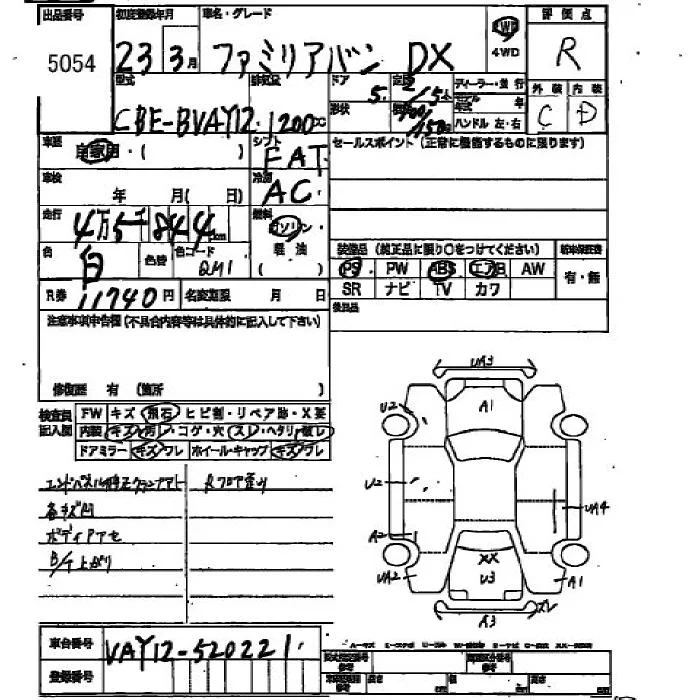 出品番号 初度登録年月 車名・グレード 評価点
5054 23 3月 ファミリアバン DX 4WD R
型式 排気量 ドア 定員 ディーラー・並行 外装 内装
CBF-BVAY12 1200cc 5 形状 年 ハンドル 左・右 C D
車歴 自家用・( ) シフト FAT セールスポイント (正常に機能するものに限ります)
車検 年 月( 日) 冷房 AC
走行 4万5千844km 燃料 ガソリン
色 白 色替 色コード QM1 軽油 ( ) 装備品 (純正品に限り〇をつけてください) 新車保証書
PS PW ABS エアB AW 有・無
R券 11740円 名変期限 月 日 SR ナビ TV カワ
注意事項申告欄(不具合内容等は具体的に記入して下さい) 後日品
修復歴 有 (箇所 )
検査員記入欄 FW キズ 飛石 ヒビ割・リペア跡・X要
内装 キズ 汚レ・コゲ・穴 スレ・ヘタリ 破レ
ドアミラー キズ ワレ ホイール・キャップ キズ ワレ
各キズ凹
ボディアセ
UA3
A1
U2
U2
UA4
A2
XX
UA2 U3 A1
A3 ズレ
車台番号 VAY12-520221
登録番号